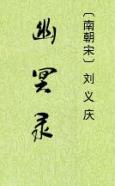 幽冥录
〔南朝宋〕刘义庆